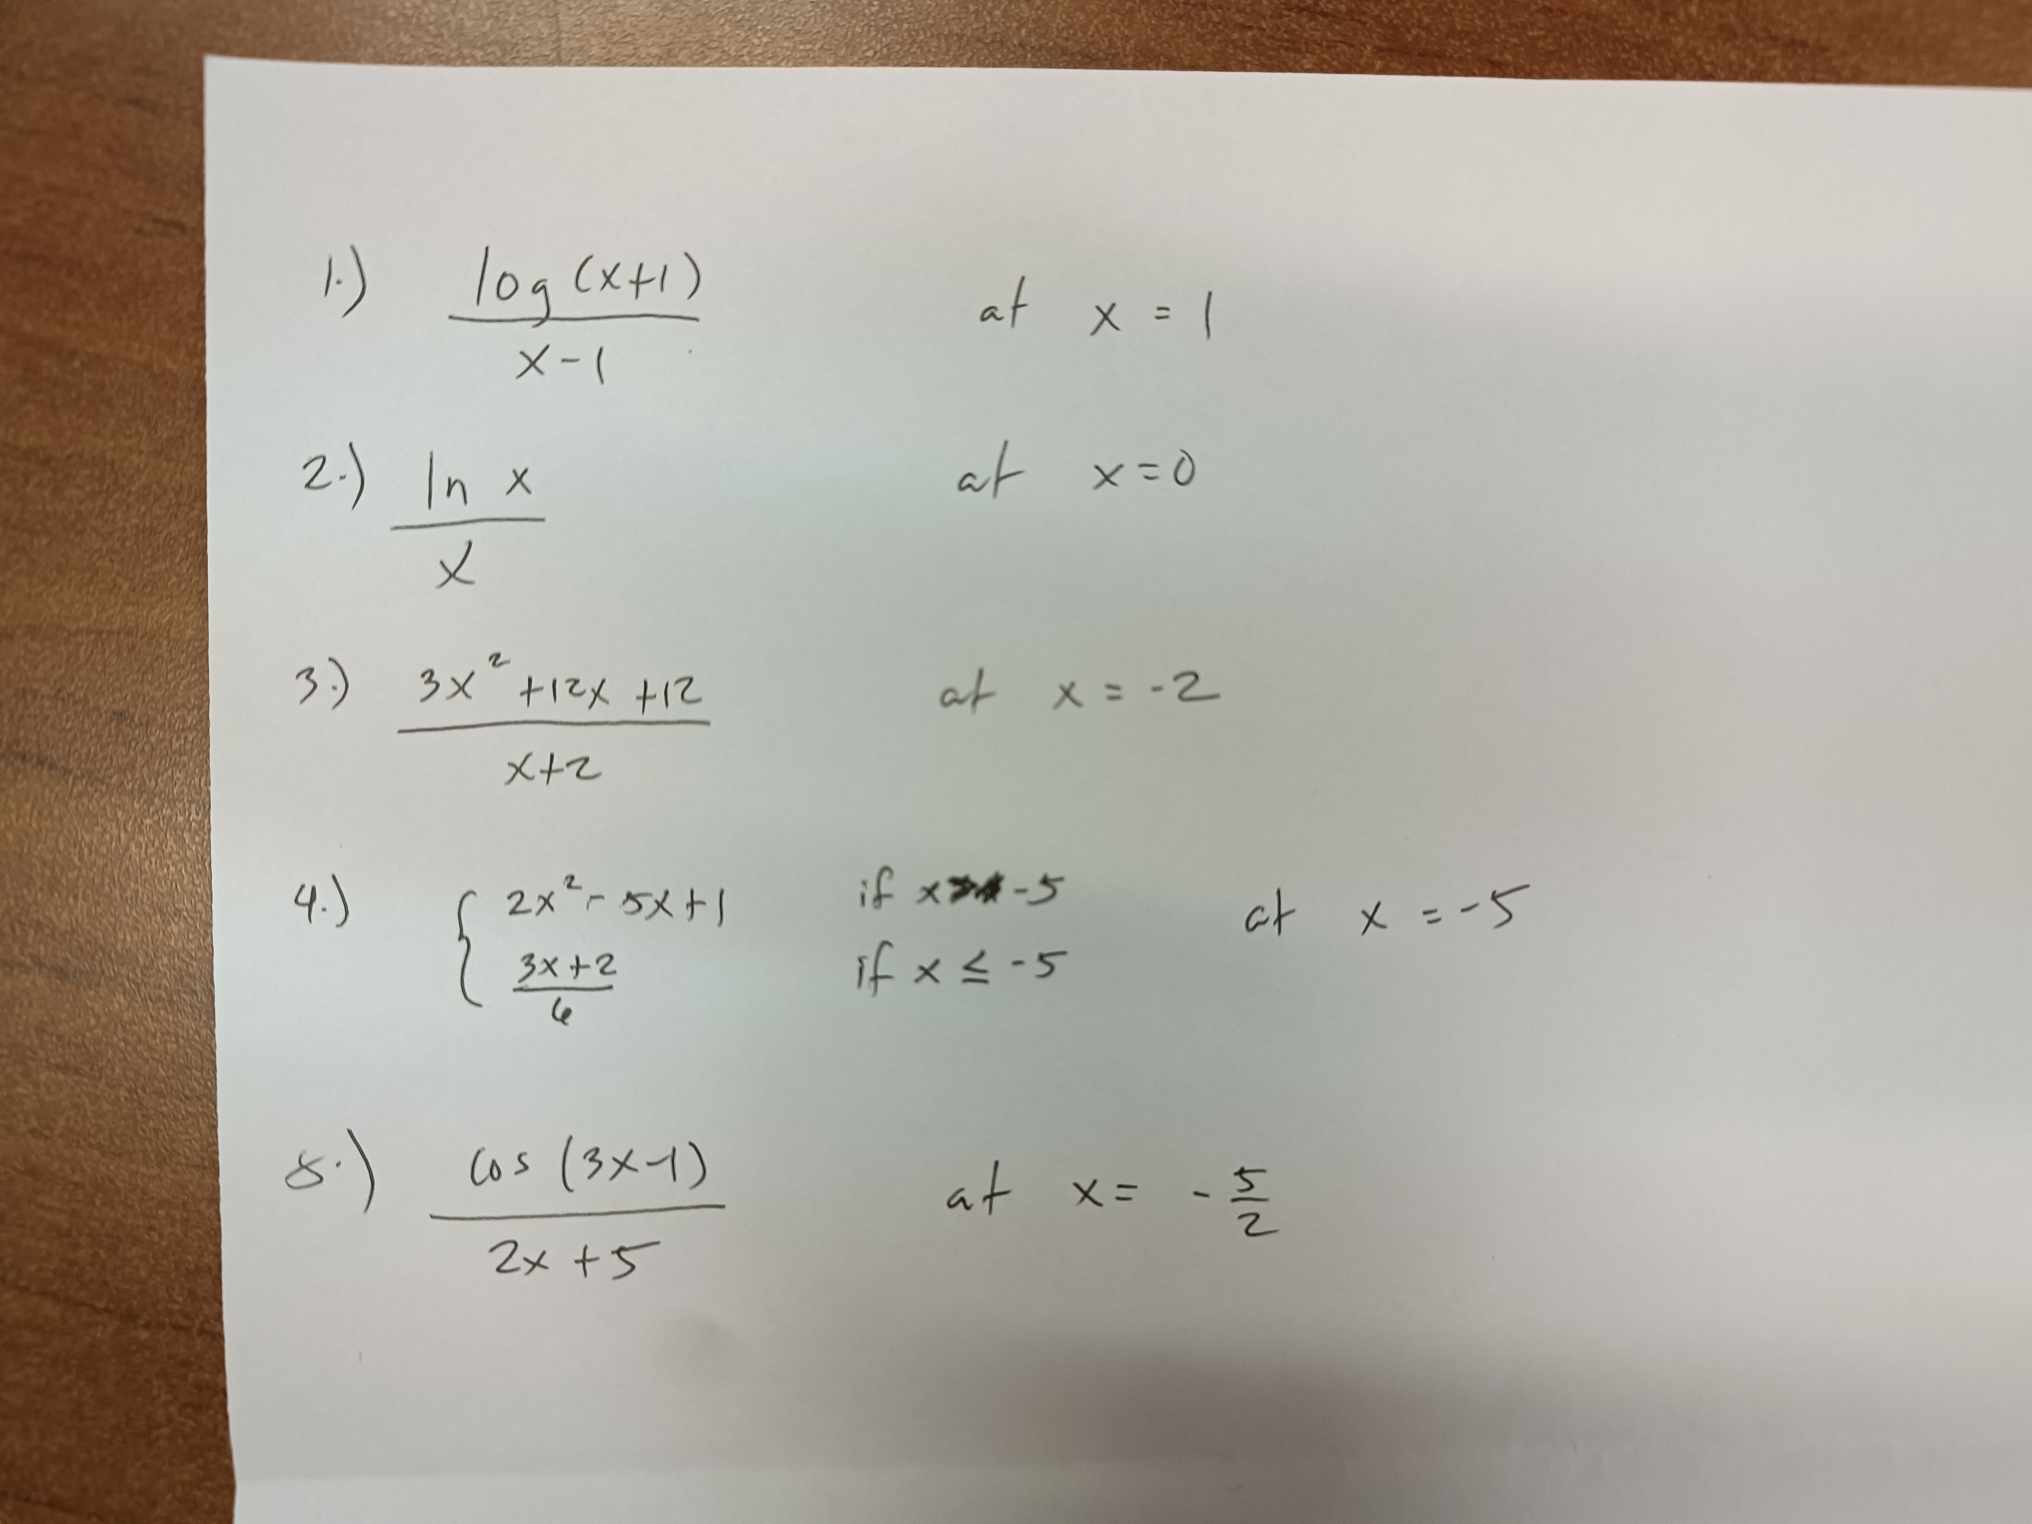 1.) log (x+1) / x-1 at x = 1
2.) ln x / x at x=0
3.) 3x² +12x +12 / x+2 at x = -2
4.) { 2x² - 5x+1 if x -5 at x = -5
3x+2 / 6 if x ≤ -5
8.) cos (3x-1) / 2x +5 at x= - 5/2